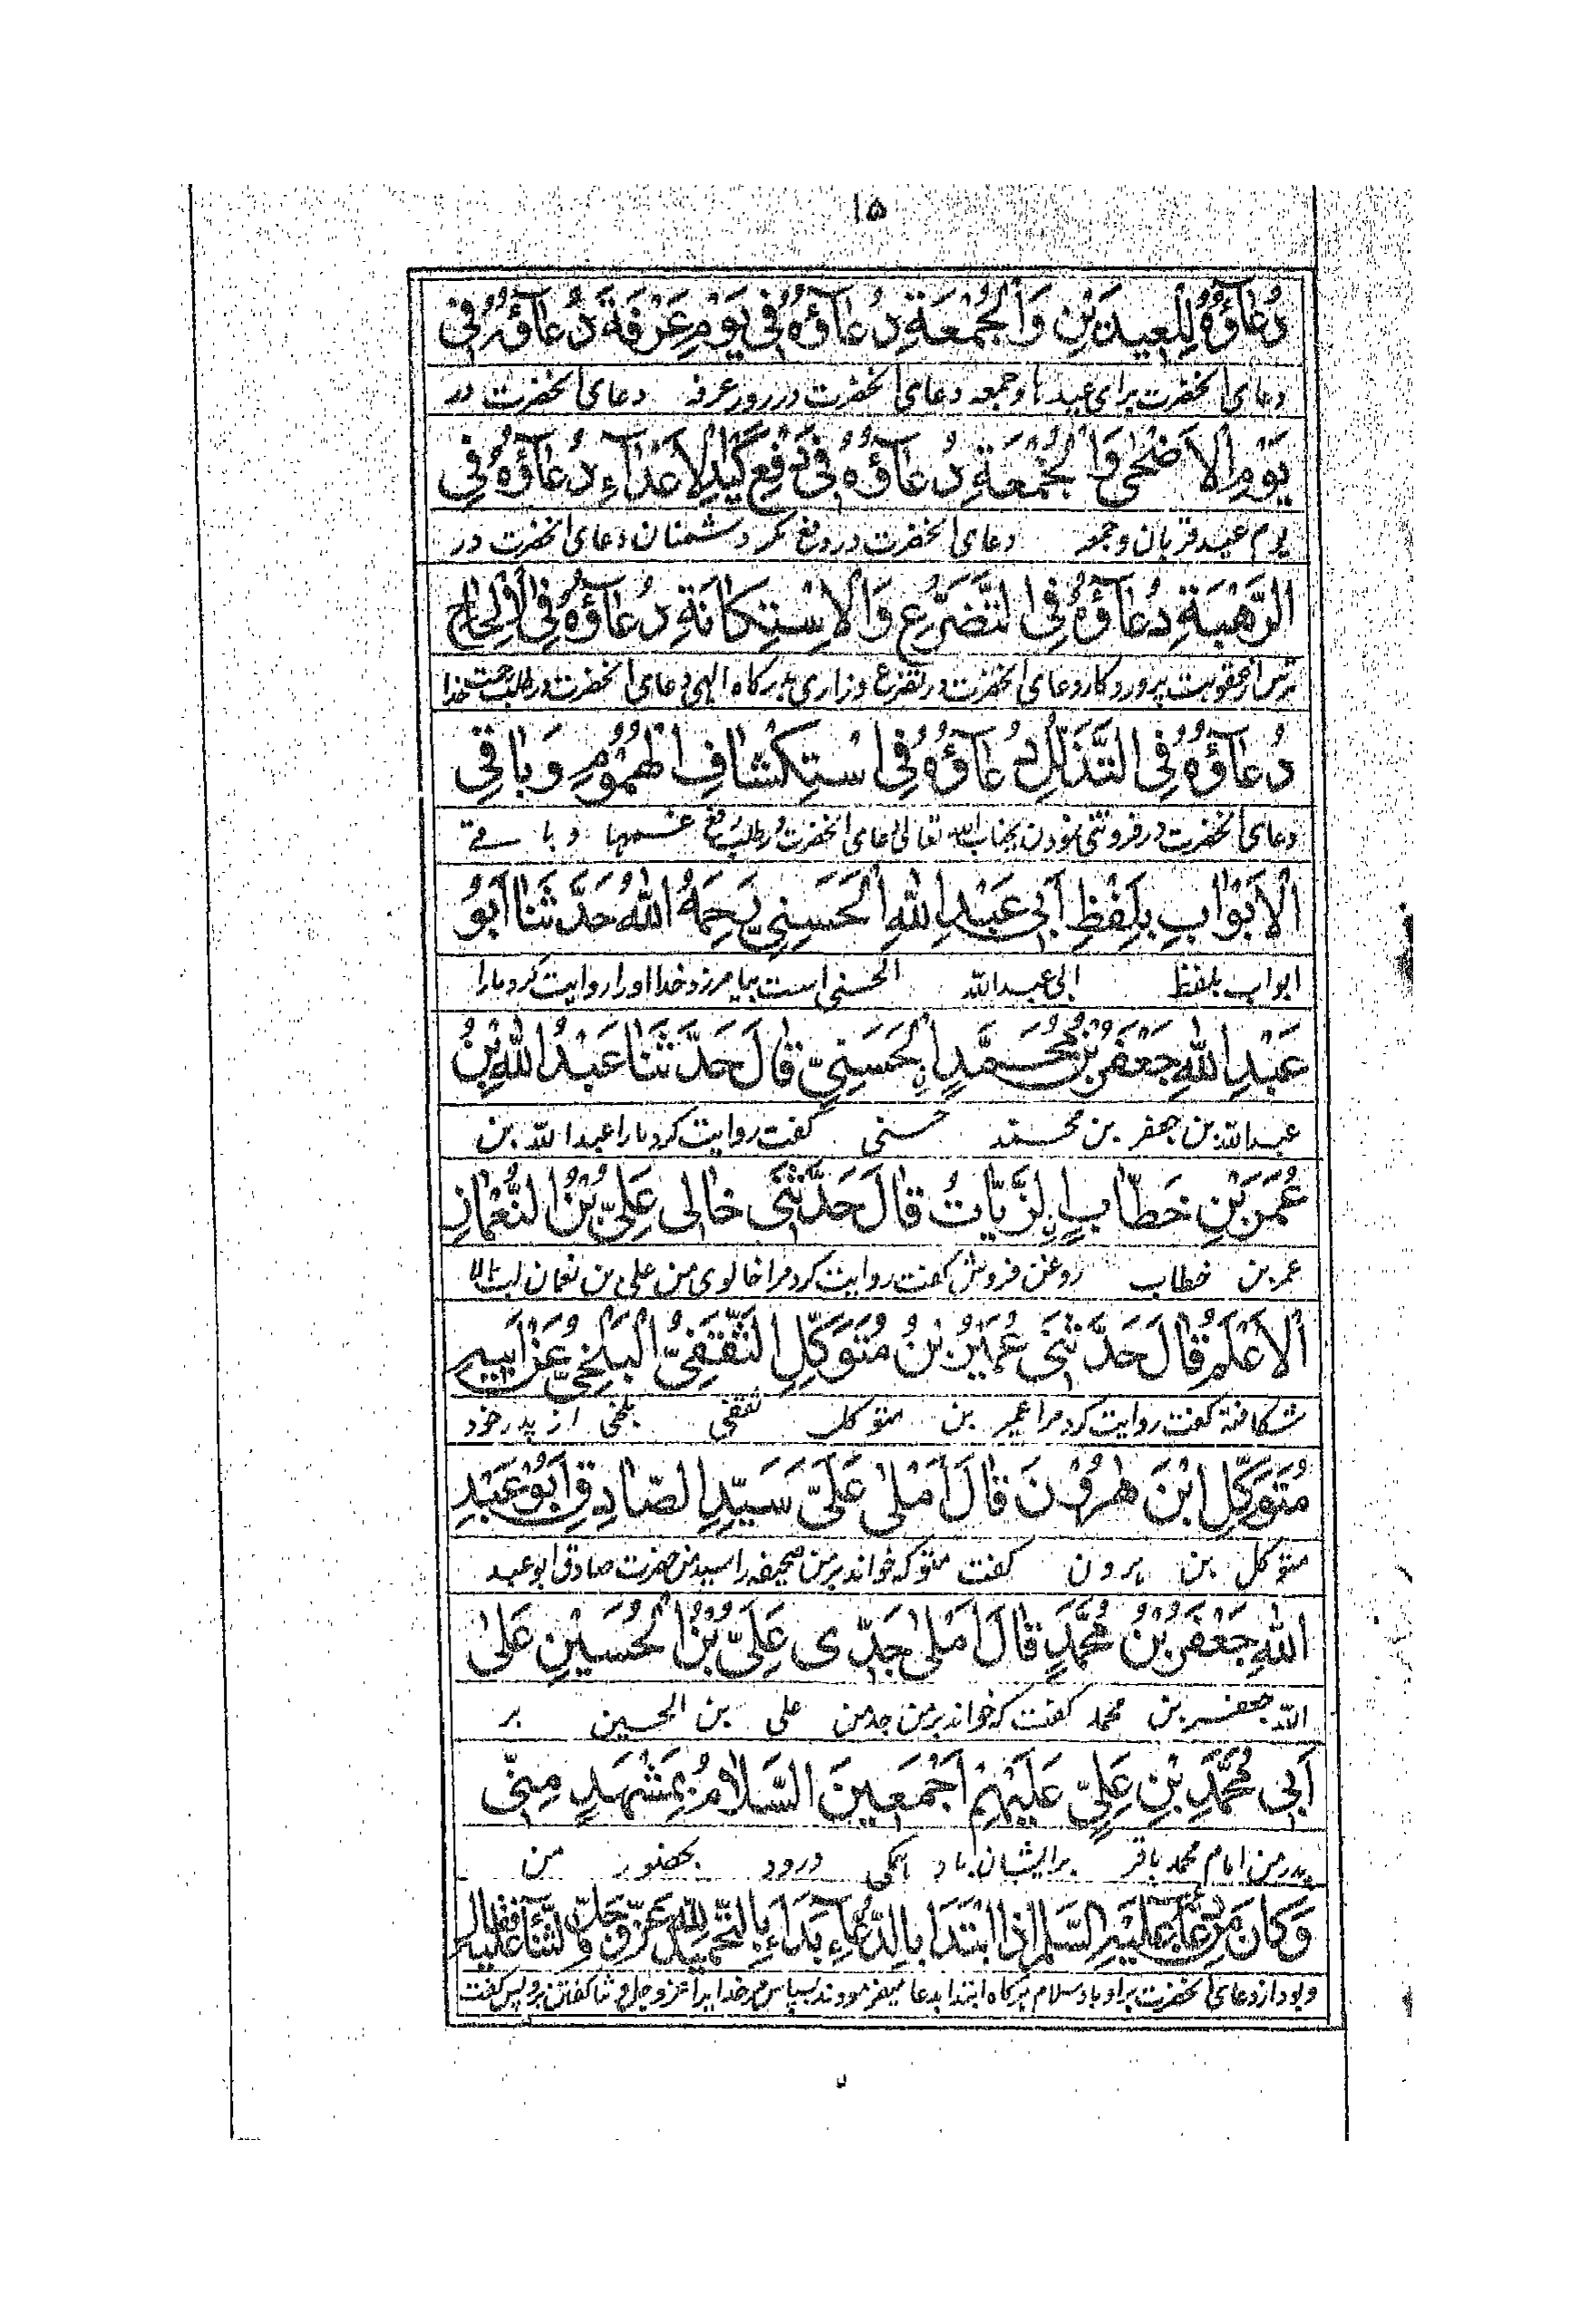 ۱۵
دُعَآؤُهُ لِلْعِيدَيْنِ وَالْجُمُعَةِ دُعَآؤُهُ فِي يَوْمِ عَرَفَةَ دُعَآؤُهُ فِي
دعای آنحضرت برای عیدها و جمعه دعای آنحضرت در روز عرفه دعای آنحضرت در
يَوْمِ الْاَضْحٰى وَالْجُمُعَةِ دُعَآؤُهُ فِي دَفْعِ كَيْدِ الْاَعْدَآءِ دُعَآؤُهُ فِي
یوم عید قربان و جمعه دعای آنحضرت در دفع مکر دشمنان دعای آنحضرت در
الرَّهْبَةِ دُعَآؤُهُ فِي التَّضَرُّعِ وَالْاِسْتِكَانَةِ دُعَآؤُهُ فِي الْاِلْحَاحِ
ترس از عقوبت پروردگار دعای آنحضرت در تضرع و زاری بدرگاه الهی دعای آنحضرت در طلب رحمت خدا
دُعَآؤُهُ فِي التَّذَلُّلِ دُعَآؤُهُ فِي اسْتِكْشَافِ الْهُمُوْمِ وَبَاقِي
دعای آنحضرت در فروتنی نمودن بجناب الله تعالی دعای آنحضرت در طلب رفع غمها و باقی
الْاَبْوَابِ بِلَفْظِ اَبِي عَبْدِ اللهِ الْحَسَنِيِّ رَحِمَهُ اللهُ حَدَّثَنَا اَبُو
ابواب بلفظ ابی عبد الله الحسنی است بیامرزد خدا او را روایت کرد ما را
عَبْدِ اللهِ جَعْفَرُ بْنُ مُحَمَّدٍ الْحَسَنِيِّ قَالَ حَدَّثَنَا عَبْدُ اللهِ بْنُ
عبد الله بن جعفر بن محمد حسنی گفت روایت کرد ما را عبد الله بن
عُمَرَ بْنِ خَطَّابٍ الزَّيَّاتُ قَالَ حَدَّثَنِي خَالِي عَلِيُّ بْنُ النُّعْمَانِ
عمر بن خطاب روغن فروش گفت روایت کرد مرا خالوی من علی بن نعمان لب بالا
الْاَعْلَمُ قَالَ حَدَّثَنِي عُمَيْرُ بْنُ مُتَوَكِّلِ الثَّقَفِيُّ الْبَلْخِيُّ عَنْ اَبِيهِ
شکافته گفت روایت کرد مرا عمیر بن متوکل ثقفی بلخی از پدر خود
مُتَوَكِّلِ ابْنَ هٰرُوْنَ قَالَ اَمْلٰى عَلَيَّ سَيِّدِ الصَّادِقِ اَبُوْ عَبْدِ
متوکل بن هرون گفت متوکل خواند بر من صحیفه را سید من حضرت صادق ابو عبد
اللهِ جَعْفَرُ بْنُ مُحَمَّدٍ قَالَ اَمْلٰى جَدِّى عَلِيُّ بْنُ الْحُسَيْنِ عَلٰى
الله جعفر بن محمد گفت که خواند بر من جد من علی بن الحسین بر
اَبِي مُحَمَّدِ بْنِ عَلِيٍّ عَلَيْهِمْ اَجْمَعِينَ السَّلَامُ بِمَشْهَدٍ مِنِّي
پدر من امام محمد باقر بر ایشان باد همگی درود بحضور من
وَكَانَ مِنْ دُعَآئِهِ عَلَيْهِ السَّلَامُ اِذَا ابْتَدَا بِالدُّعَآءِ بَدَاءَ بِالتَّحْمِيدِ لِلّٰهِ عَزَّ وَجَلَّ وَالثَّنَآءِ عَلَيْهِ فَقَالَ
و بود از دعای آنحضرت بر او باد سلام هرگاه ابتدا بدعا میفرمودند بسپاس مر خدا یرا عز و جل و ثنا گفتن بر او پس گفت